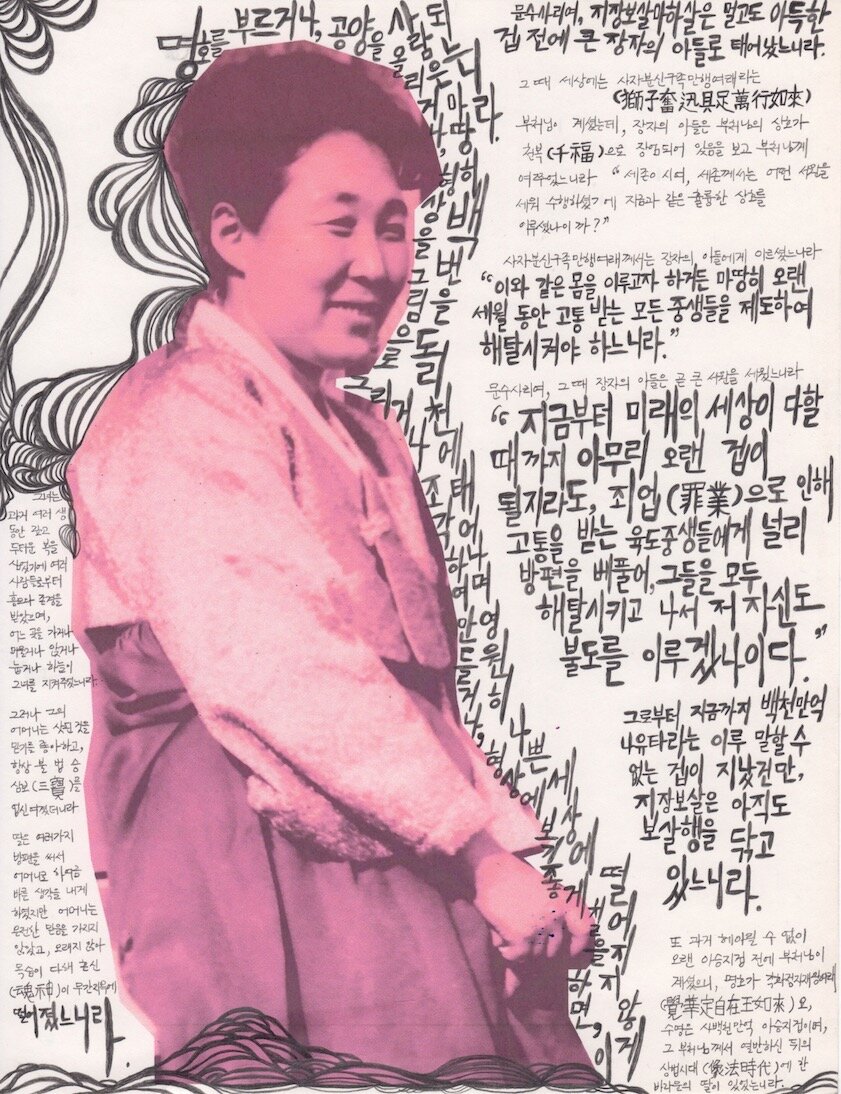 명호를 부르거나, 공양을 올리거나, 형상을 그림으로 그리거나 조각하여 만들거나, 형상에 하면, 이
사람은 마땅히 백번을 돌리천에 태어나며 영원히 나쁜 세상에 떨어지지 않게 되느니라.
문수사리여, 지장보살마하살은 멀고도 아득한
겁 전에 큰 장자의 아들로 태어났느니라.
그때 세상에는 사자분신구족만행여래라는
(獅子奮迅具足萬行如來)
부처님이 계셨는데, 장자의 아들은 부처님의 상호가
천복(千福)으로 장엄되어 있음을 보고 부처님께
여쭈었느니라 "세존이시여, 세존께서는 어떤 서원을
세워 수행하셨기에 지금과 같은 훌륭한 상호를
이루셨나이까?"
사자분신구족만행여래께서는 장자의 아들에게 이르셨느니라
"이와 같은 몸을 이루고자 하거든 마땅히 오랜
세월 동안 고통 받는 모든 중생들을 제도하여
해탈시켜야 하느니라."
문수사리여, 그때 장자의 아들은 곧 큰 서원을 세웠느니라
"지금부터 미래의 세상이 다할
때까지 아무리 오랜 겁이
될지라도, 죄업(罪業)으로 인해
고통을 받는 육도중생들에게 널리
방편을 베풀어, 그들을 모두
해탈시키고 나서 저 자신도
불도를 이루겠나이다."
그로부터 지금까지 백천만억
나유타라는 이루 말할 수
없는 겁이 지났건만,
지장보살은 아직도
보살행을 닦고
있느니라.
또 과거 헤아릴 수 없이
오랜 아승지겁 전에 부처님이
계셨으니, 명호가 각화정자재왕여래
(覺華定自在王如來)요,
수명은 사백천만억 아승지겁이며,
그 부처님께서 열반하신 뒤의
상법시대(像法時代)에 한
바라문의 딸이 있었느니라.
그녀는
과거 여러 생
동안 깊고
두터운 복을
심었기에 여러
사람들로부터
흠모와 존경을
받았으며,
어느 곳을 가거나
머물거나 앉거나
눕거나 하늘이
그녀를 지켜주었느니라.
그러나 그의
어머니는 삿된 것을
믿기를 좋아하고,
항상 불 법 승
삼보(三寶)를
업신여겼더니라
딸은 여러가지
방편을 써서
어머니로 하여금
바른 생각을 내게
하였지만 어머니는
온전한 믿음을 가지지
않았고, 오래지 않아
목숨이 다해 혼신
(魂神)이 무간지옥에
떨어졌느니라.